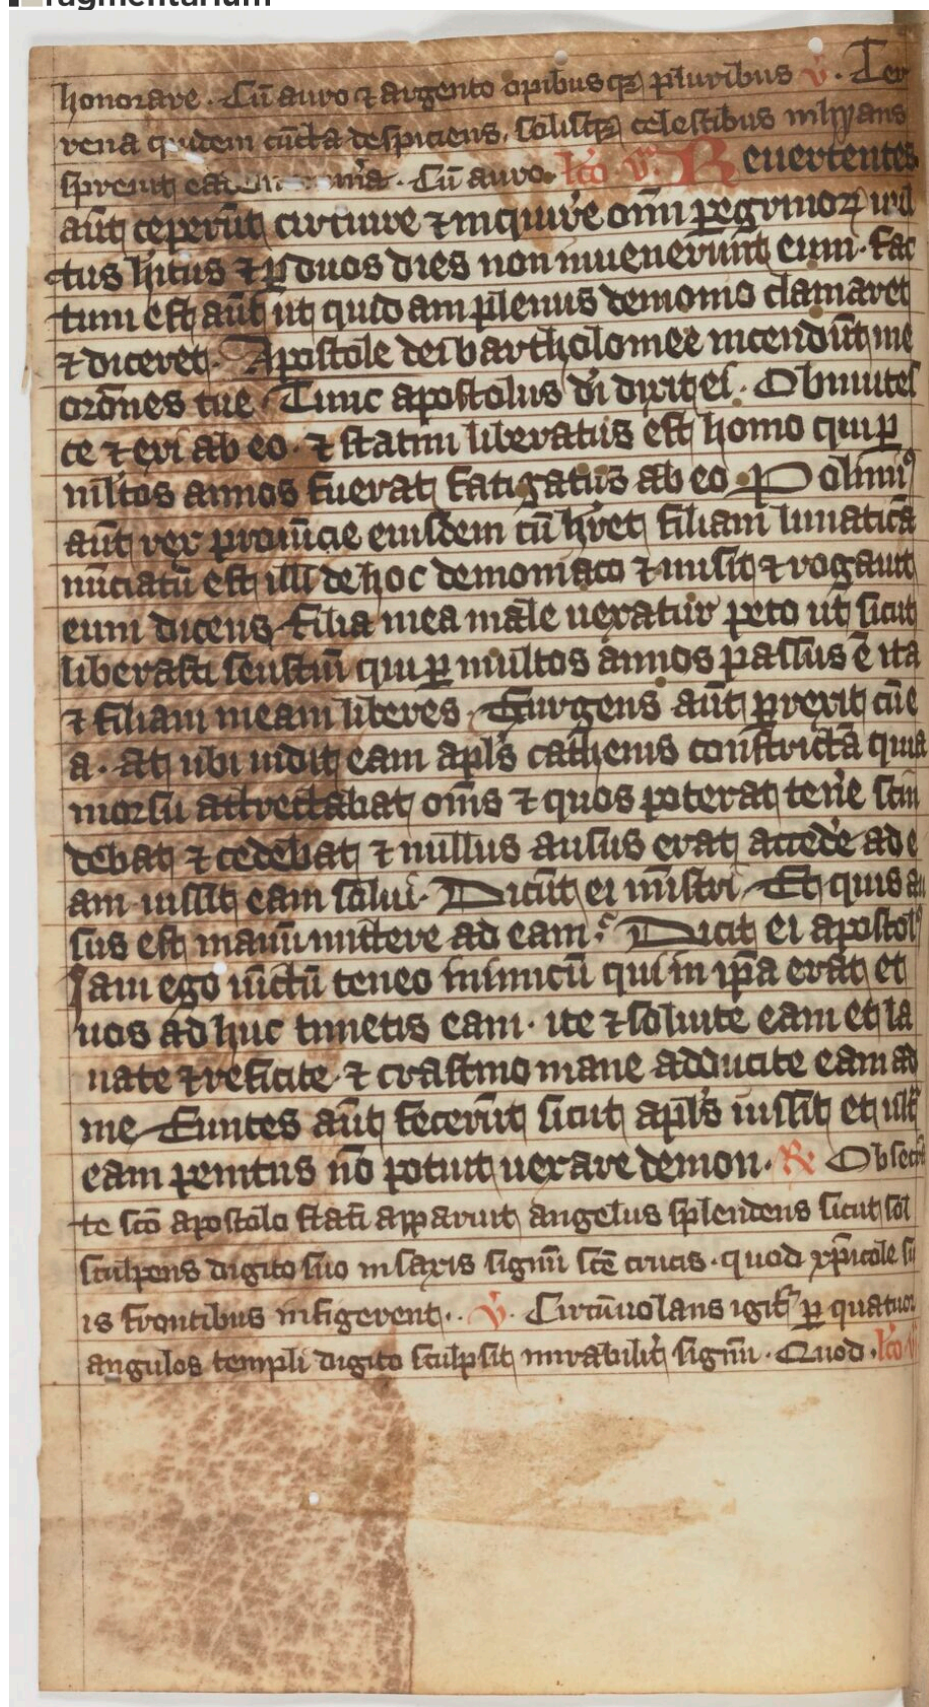 ragmentarium
honorare. Cū auro ⁊ argento opibusqꝫ pluribus v̄. Ter
rena quidem cūcta despiciens. solisqꝫ celestibus inhyans
spreuit ea. Cū auro. lcō v. Reuertentes
aūt ceperūt circuire ⁊ inquire om̄i pegrinoꝝ
ctus hitus ⁊ ꝑ duos dies non inuenerunt eum. fac
tum est aūt ut quidam plenus demonio clamaret
⁊ diceret. Apostole dei bartholomee incendūt me
orōnes tue Tunc apostolus dī dixit ei. Obmutes
ce ⁊ exi ab eo. ⁊ statim liberatus est homo qui ꝑ
multos annos fuerat fatigatus ab eo Polimiꝰ
aūt rex prouīcie eiusdem cū hret filiam lunaticā
nūciatū est illi de hoc demoniaco ⁊ misit ⁊ rogauit
eum dicens filia mea male uexatur peto ut sicut
liberasti seustiū qui ꝑ multos annos passus ē ita
⁊ filiam meam liberes. Surgens aūt ꝑrexit cū e
a. at ubi uidit eam apls cathenis constrictā quia
morsu attrectabat om̄s ⁊ quos poterat tene scin
debat ⁊ cedebat ⁊ nullus ausus erat accede ad e
am iussit eam solui. Dicūt ei mīstri Et quis au
sus est manū mittere ad eam. Dicit ei apostolꝰ
Iam ego uīctū teneo inimicū qui in ip̄a erat et
uos adhuc timetis eam. ite ⁊ soluite eam et la
uate ⁊ reficite. ⁊ crastino mane adducite eam ad
me Euntes aūt fecerūt sicut apls iussit et ult
eam penitus nō potuit uexare demon. ℟ Obsecrā
te scō apostolo statī apparuit angelus splendens sicut sol
sculpens digito suo in saxis signū scē crucis. quod xp̄icole su
is frontibus infigerent.. v̄. Circūuolans igit ꝑ quatuor
angulos templi digito sculpsit mirabilit signū. Quod. lcō v